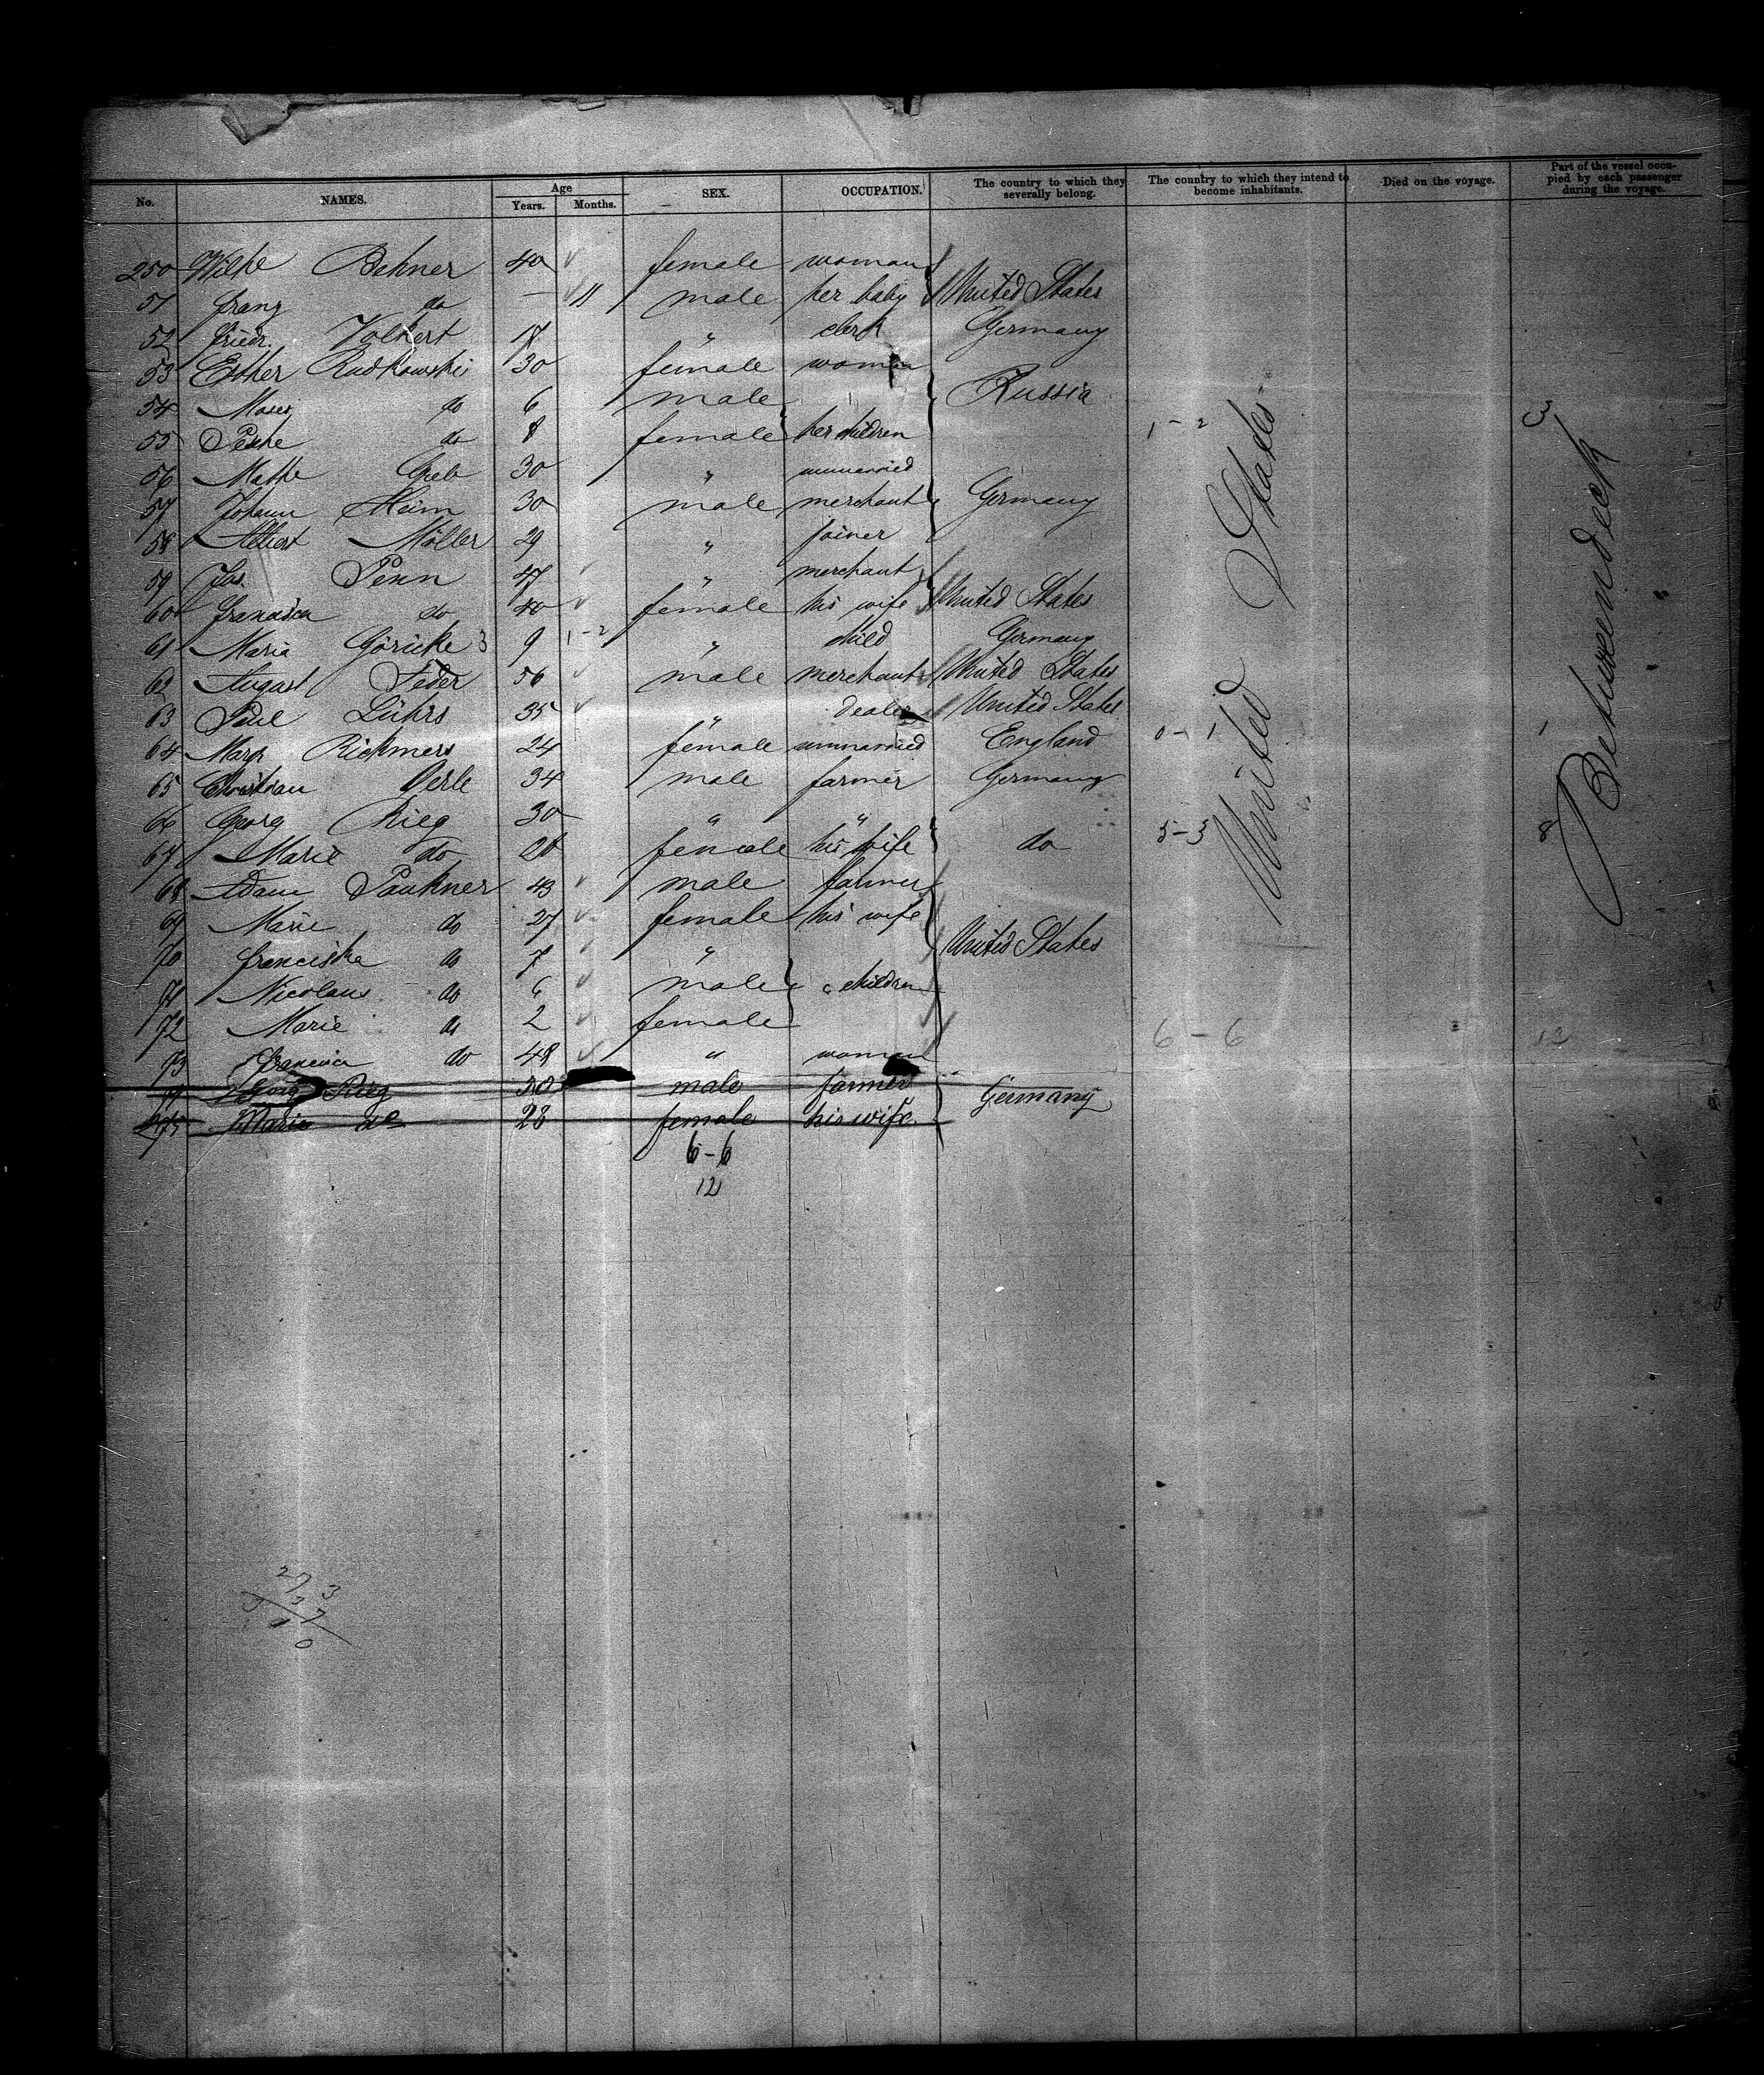 No. NAMES. Age Years. Months. SEX. OCCUPATION. The country to which they severally belong. The country to which they intend to become inhabitants. Died on the voyage. Part of the vessel occupied by each passenger during the voyage.
250 Wilhe Behner 40 female woman
51 Franz do — 11 male her baby United States
52 Friedr. Volkert 17 " clerk Germany
53 Esther Rudkowski 30 female woman
54 Moses do 6 male Russia
55 Pesche do 8 female her children 1-2 3
56 Mathe Greb 30 " unmarried
57 Johann Heim 30 male merchant Germany
58 Albert Möller 29 " joiner
59 Jos. Penn 47 " merchant
60 Franziska do 40 female his wife United States
61 Maria Göricke 3 9 1-2 " child Germany
62 August Feder 56 male merchant United States
63 Paul Lührs 35 " dealer United States
64 Margr Rickmers 24 female unmarried England 0-1 1
65 Christian Oerle 34 male farmer Germany
66 Georg Rieg 30 " "
67 Marie do 28 female his wife do 5-3 8
68 Adam Paukner 43 male farmer
69 Marie do 27 female his wife
70 Franciska do 7 " United States
71 Nicolaus do 6 male " children
72 Marie do 2 female 6-6 12
73 do 48 " woman
74 Georg Rieg 30 male farmer Germany
275 Marie do 28 female his wife
6-6
12
United States
Betweendeck
273
37